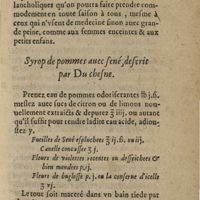 lancholiques qu'on pourra faire prendre com-
modement en toute saison à tous, mesme à
ceux qui n'vsent de medecine sinon auec gran-
de peine, comme aux femmes enceintes & aux
petits enfans.
Syrop de pommes auec sené, descrit
par Du chesne.
Prenez eau de pommes odoriferantes lb j.ß.
meslez auec sucs de citron ou de limons nou-
uellement extraicts & depurez ℥ iiij. ou autant
qu'il suffit pour rendre ladite eau acide, adiou-
stez y.
Fueilles de Sené espluchees ℥ ij.ß. ou iij,
Canelle concassee ʒ j.
Fleurs de violettes recentes ou desseichees &
bien mondees p.j.
Fleurs de buglosse p. j. ou la conserue d'icelle
ʒ vj.
Le tout soit maceré dans vn bain tiede par